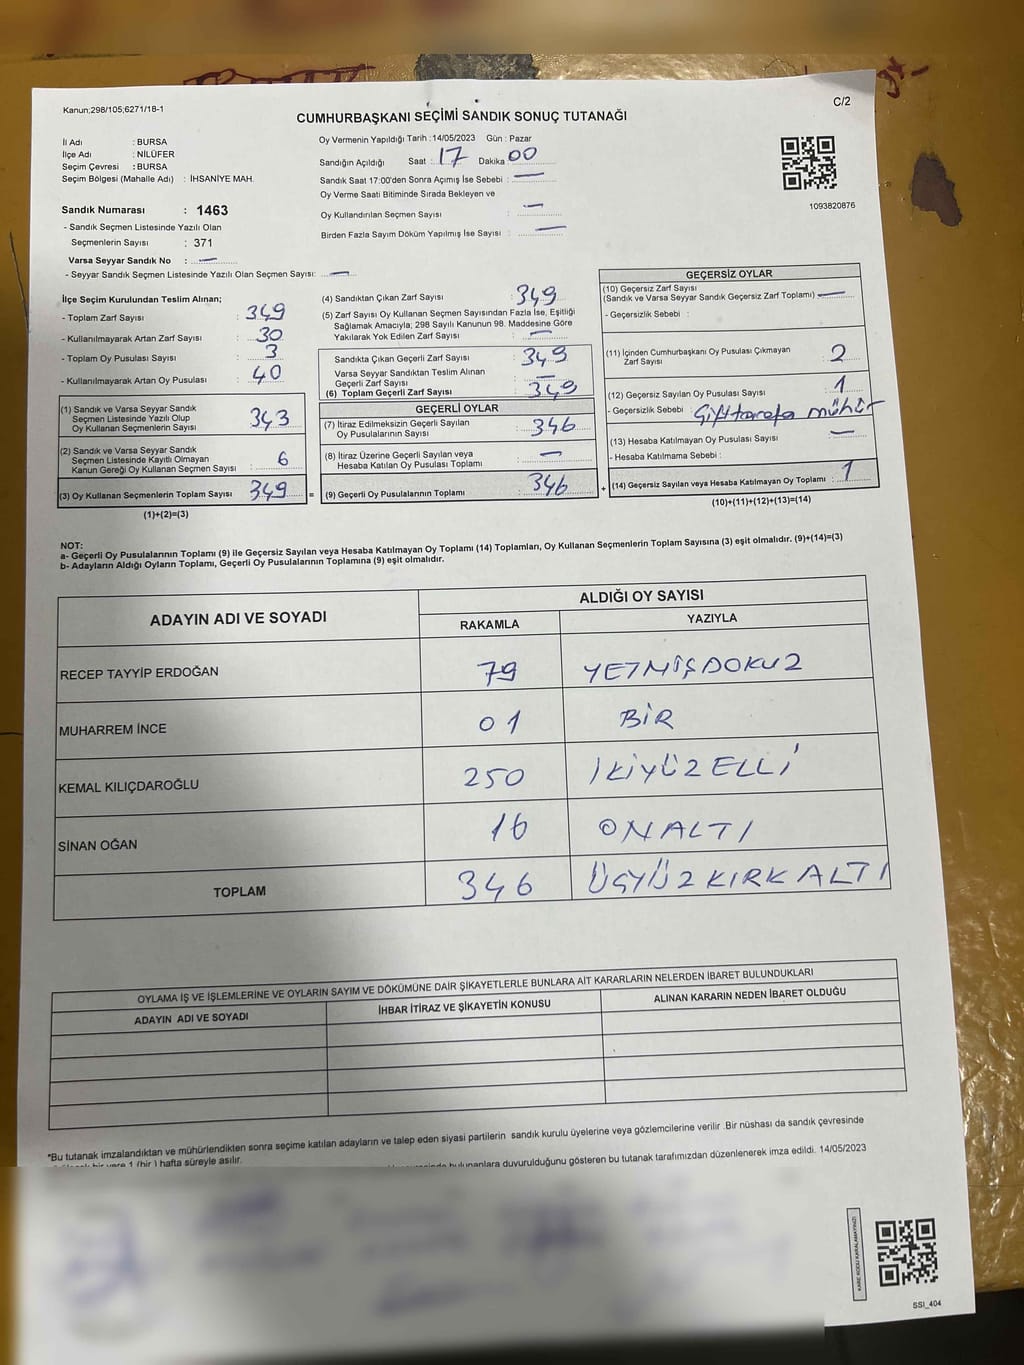 Kanun;298/105;6271/18-1
C/2
CUMHURBAŞKANI SEÇİMİ SANDIK SONUÇ TUTANAĞI
İl Adı : BURSA
İlçe Adı : NİLÜFER
Seçim Çevresi : BURSA
Seçim Bölgesi (Mahalle Adı) : İHSANİYE MAH.
Sandık Numarası : 1463
- Sandık Seçmen Listesinde Yazılı Olan
Seçmenlerin Sayısı : 371
Varsa Seyyar Sandık No : —
- Seyyar Sandık Seçmen Listesinde Yazılı Olan Seçmen Sayısı: —
Oy Vermenin Yapıldığı Tarih : 14/05/2023 Gün : Pazar
Sandığın Açıldığı Saat : 17 Dakika 00
Sandık Saat 17:00'den Sonra Açımış İse Sebebi : —
Oy Verme Saati Bitiminde Sırada Bekleyen ve
Oy Kullandırılan Seçmen Sayısı : —
Birden Fazla Sayım Döküm Yapılmış İse Sayısı : —
1093820876
İlçe Seçim Kurulundan Teslim Alınan;
- Toplam Zarf Sayısı : 349
- Kullanılmayarak Artan Zarf Sayısı : 30
- Toplam Oy Pusulası Sayısı : 3
- Kullanılmayarak Artan Oy Pusulası : 40
(1) Sandık ve Varsa Seyyar Sandık
Seçmen Listesinde Yazılı Olup
Oy Kullanan Seçmenlerin Sayısı : 343
(2) Sandık ve Varsa Seyyar Sandık
Seçmen Listesinde Kayıtlı Olmayan
Kanun Gereği Oy Kullanan Seçmen Sayısı : 6
(3) Oy Kullanan Seçmenlerin Toplam Sayısı 349 =
(1)+(2)=(3)
(4) Sandıktan Çıkan Zarf Sayısı : 349
(5) Zarf Sayısı Oy Kullanan Seçmen Sayısından Fazla İse, Eşitliği
Sağlamak Amacıyla; 298 Sayılı Kanunun 98. Maddesine Göre
Yakılarak Yok Edilen Zarf Sayısı : —
Sandıkta Çıkan Geçerli Zarf Sayısı : 349
Varsa Seyyar Sandıktan Teslim Alınan
Geçerli Zarf Sayısı : —
(6) Toplam Geçerli Zarf Sayısı : 349
GEÇERLİ OYLAR
(7) İtiraz Edilmeksizin Geçerli Sayılan
Oy Pusulalarının Sayısı : 346
(8) İtiraz Üzerine Geçerli Sayılan veya
Hesaba Katılan Oy Pusulası Toplamı : —
(9) Geçerli Oy Pusulalarının Toplamı : 346 +
GEÇERSİZ OYLAR
(10) Geçersiz Zarf Sayısı
(Sandık ve Varsa Seyyar Sandık Geçersiz Zarf Toplamı) —
- Geçersizlik Sebebi :
(11) İçinden Cumhurbaşkanı Oy Pusulası Çıkmayan
Zarf Sayısı : 2
(12) Geçersiz Sayılan Oy Pusulası Sayısı : 1
- Geçersizlik Sebebi : Çift tarafa mühür
(13) Hesaba Katılmayan Oy Pusulası Sayısı : —
- Hesaba Katılmama Sebebi :
(14) Geçersiz Sayılan veya Hesaba Katılmayan Oy Toplamı : 1
(10)+(11)+(12)+(13)=(14)
NOT:
a- Geçerli Oy Pusulalarının Toplamı (9) ile Geçersiz Sayılan veya Hesaba Katılmayan Oy Toplamı (14) Toplamları, Oy Kullanan Seçmenlerin Toplam Sayısına (3) eşit olmalıdır. (9)+(14)=(3)
b- Adayların Aldığı Oyların Toplamı, Geçerli Oy Pusulalarının Toplamına (9) eşit olmalıdır.
ADAYIN ADI VE SOYADI
ALDIĞI OY SAYISI
RAKAMLA YAZIYLA
RECEP TAYYİP ERDOĞAN 79 YETMİŞDOKUZ
MUHARREM İNCE 01 BİR
KEMAL KILIÇDAROĞLU 250 İKİYÜZELLİ
SİNAN OĞAN 16 ONALTI
TOPLAM 346 ÜÇYÜZKIRKALTI
OYLAMA İŞ VE İŞLEMLERİNE VE OYLARIN SAYIM VE DÖKÜMÜNE DAİR ŞİKAYETLERLE BUNLARA AİT KARARLARIN NELERDEN İBARET BULUNDUKLARI
ADAYIN ADI VE SOYADI İHBAR İTİRAZ VE ŞİKAYETİN KONUSU ALINAN KARARIN NEDEN İBARET OLDUĞU
*Bu tutanak imzalandıktan ve mühürlendikten sonra seçime katılan adayların ve talep eden siyasi partilerin sandık kurulu üyelerine veya gözlemcilerine verilir .Bir nüshası da sandık çevresinde
bir yere 1 (bir ) hafta süreyle asılır.
bulunanlara duyurulduğunu gösteren bu tutanak tarafımızdan düzenlenerek imza edildi. 14/05/2023
KARE KODU KARALAMAYINIZ!
SSI_404